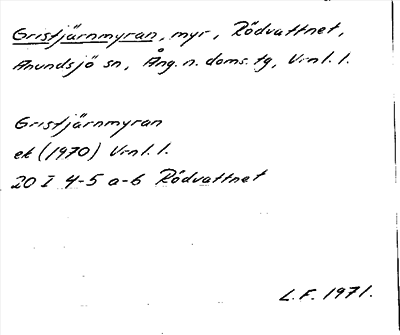 Gristjärnmyran, myr, Rödvattnet,
Anundsjö sn, Ång. n. doms. tg, Vrnl. l.
Gristjärnmyran
ek (1970) Vrnl. l.
20 I 4-5 a-b Rödvattnet
L.F. 1971.